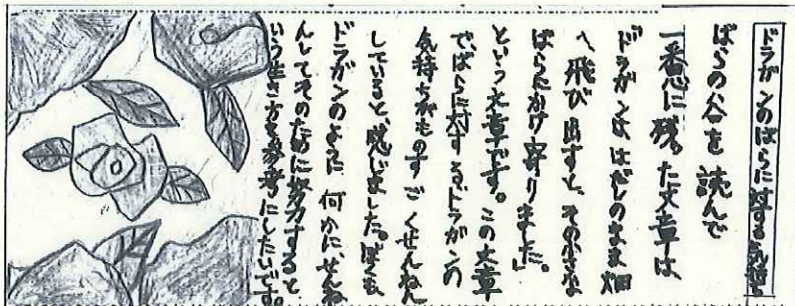 ドラガンのばらに対する気持ち
ばらの谷を読んで
一番心に残った文章は、
ドラガンは、はだしのまま畑
へ飛び出すと、その小さな
ばらにかけ寄りました。」
という文章です。この文章
で、ばらに対するドラガンの
気持ちがものすごくせんねん
していると、感じました。ぼくも、
ドラガンのように何かに、せんね
んしてそのために努力すると
いう生き方を参考にしたいです。